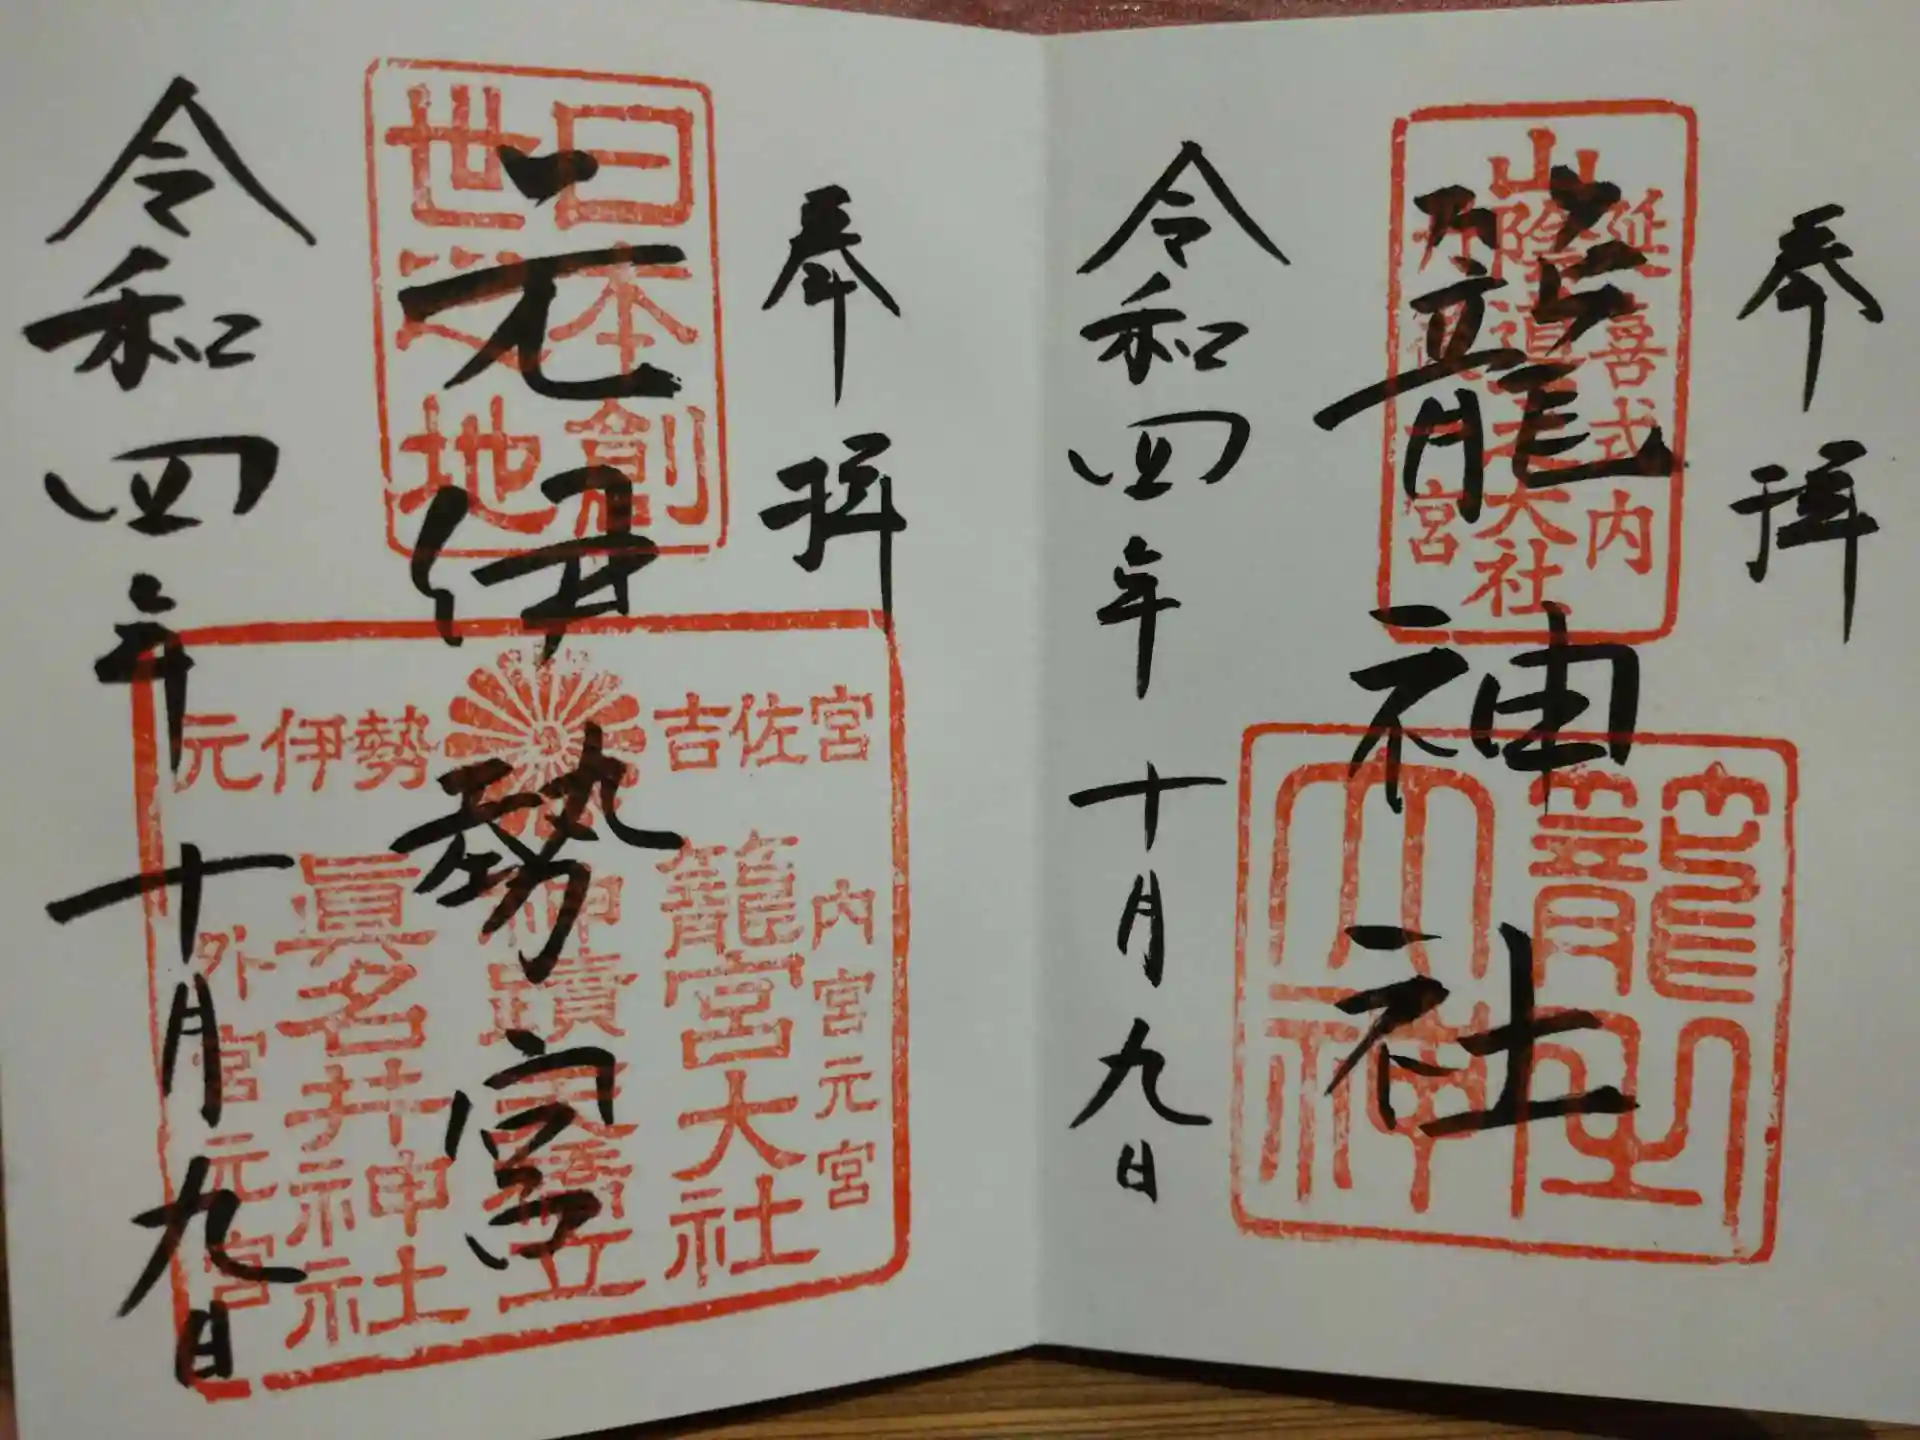 奉拝
延喜式内
山陰道一大社
丹後一宮
籠神社
籠之大神
令和四年十月九日
奉拝
日本創
世之地
元伊勢宮
元伊勢
吉佐宮
内宮元宮
籠宮大社
神蹟天橋立
眞名井神社
外宮元宮
令和四年十月九日